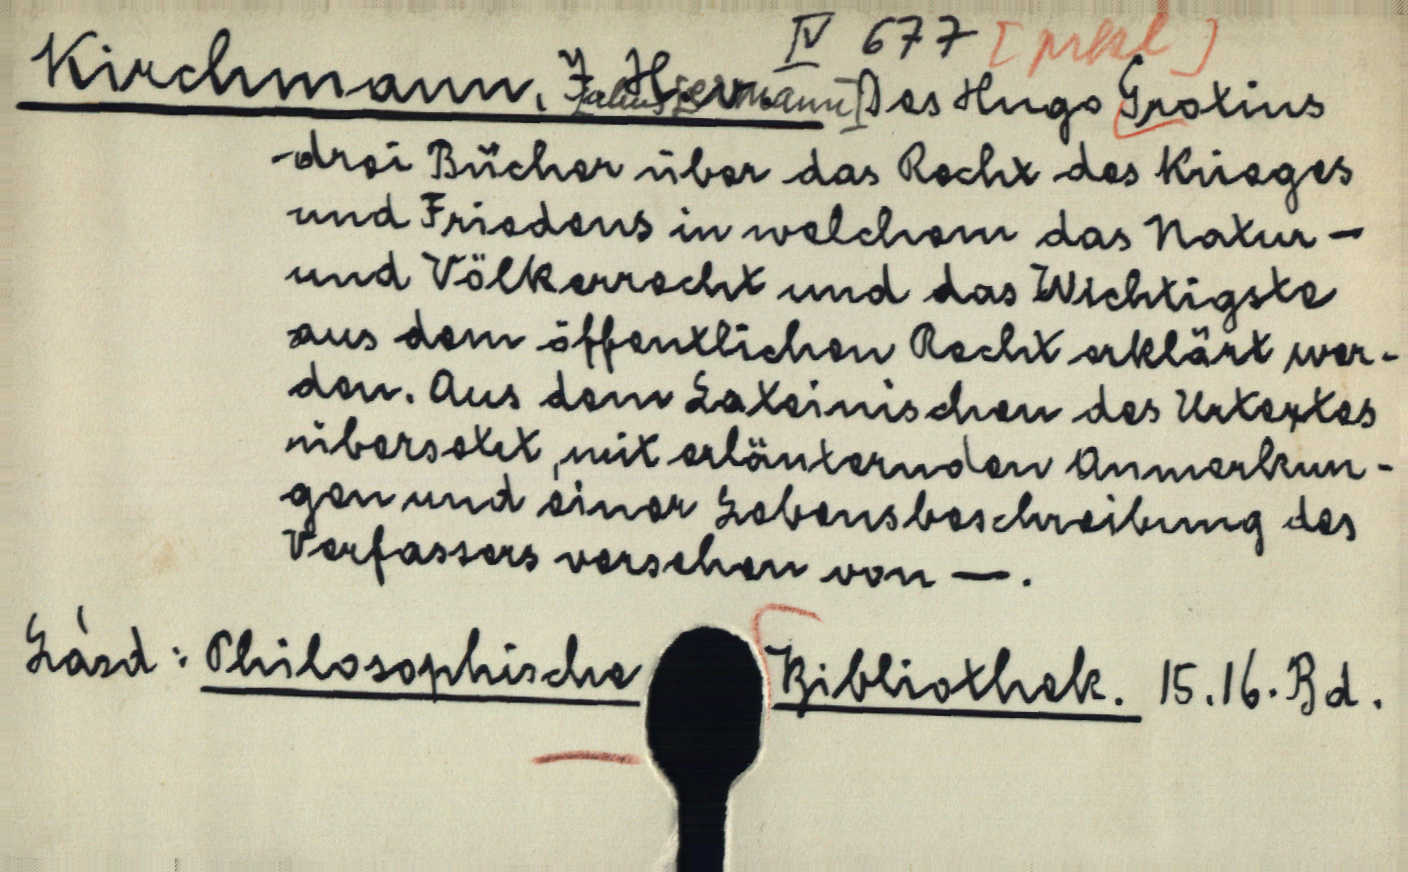 IV 677 [prkl]
Kirchmann, J. H. v. Des Hugo Grotius
drei Bücher über das Recht des Krieges
und Friedens in welchem das Natur –
und Völkerrecht und das Wichtigste
aus dem öffentlichen Recht erklärt wer-
den. Aus dem Lateinischen des Urtextes
übersetzt, mit erläuternden Anmerkun-
gen und einer Lebensbeschreibung des
Verfassers versehen von —.
Lásd: Philosophische Bibliothek. 15.16. Bd.